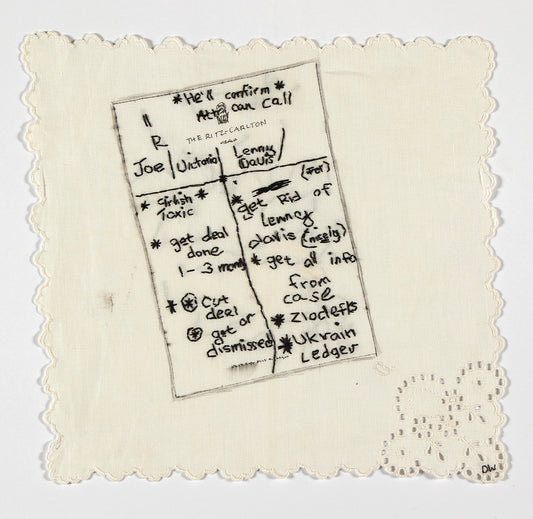 *He'll confirm*
can call
"
R
THE RITZ-CARLTON
Joe Victoria Lenny
Davis
*
Toxic
* get deal
done
1-3
* ⊛ Cut
deal
⊛ get or
dismissed
* get Rid of
Lenney
davis (nicely)
* get all info
from
case
*
* Ukrain
Ledger
DW